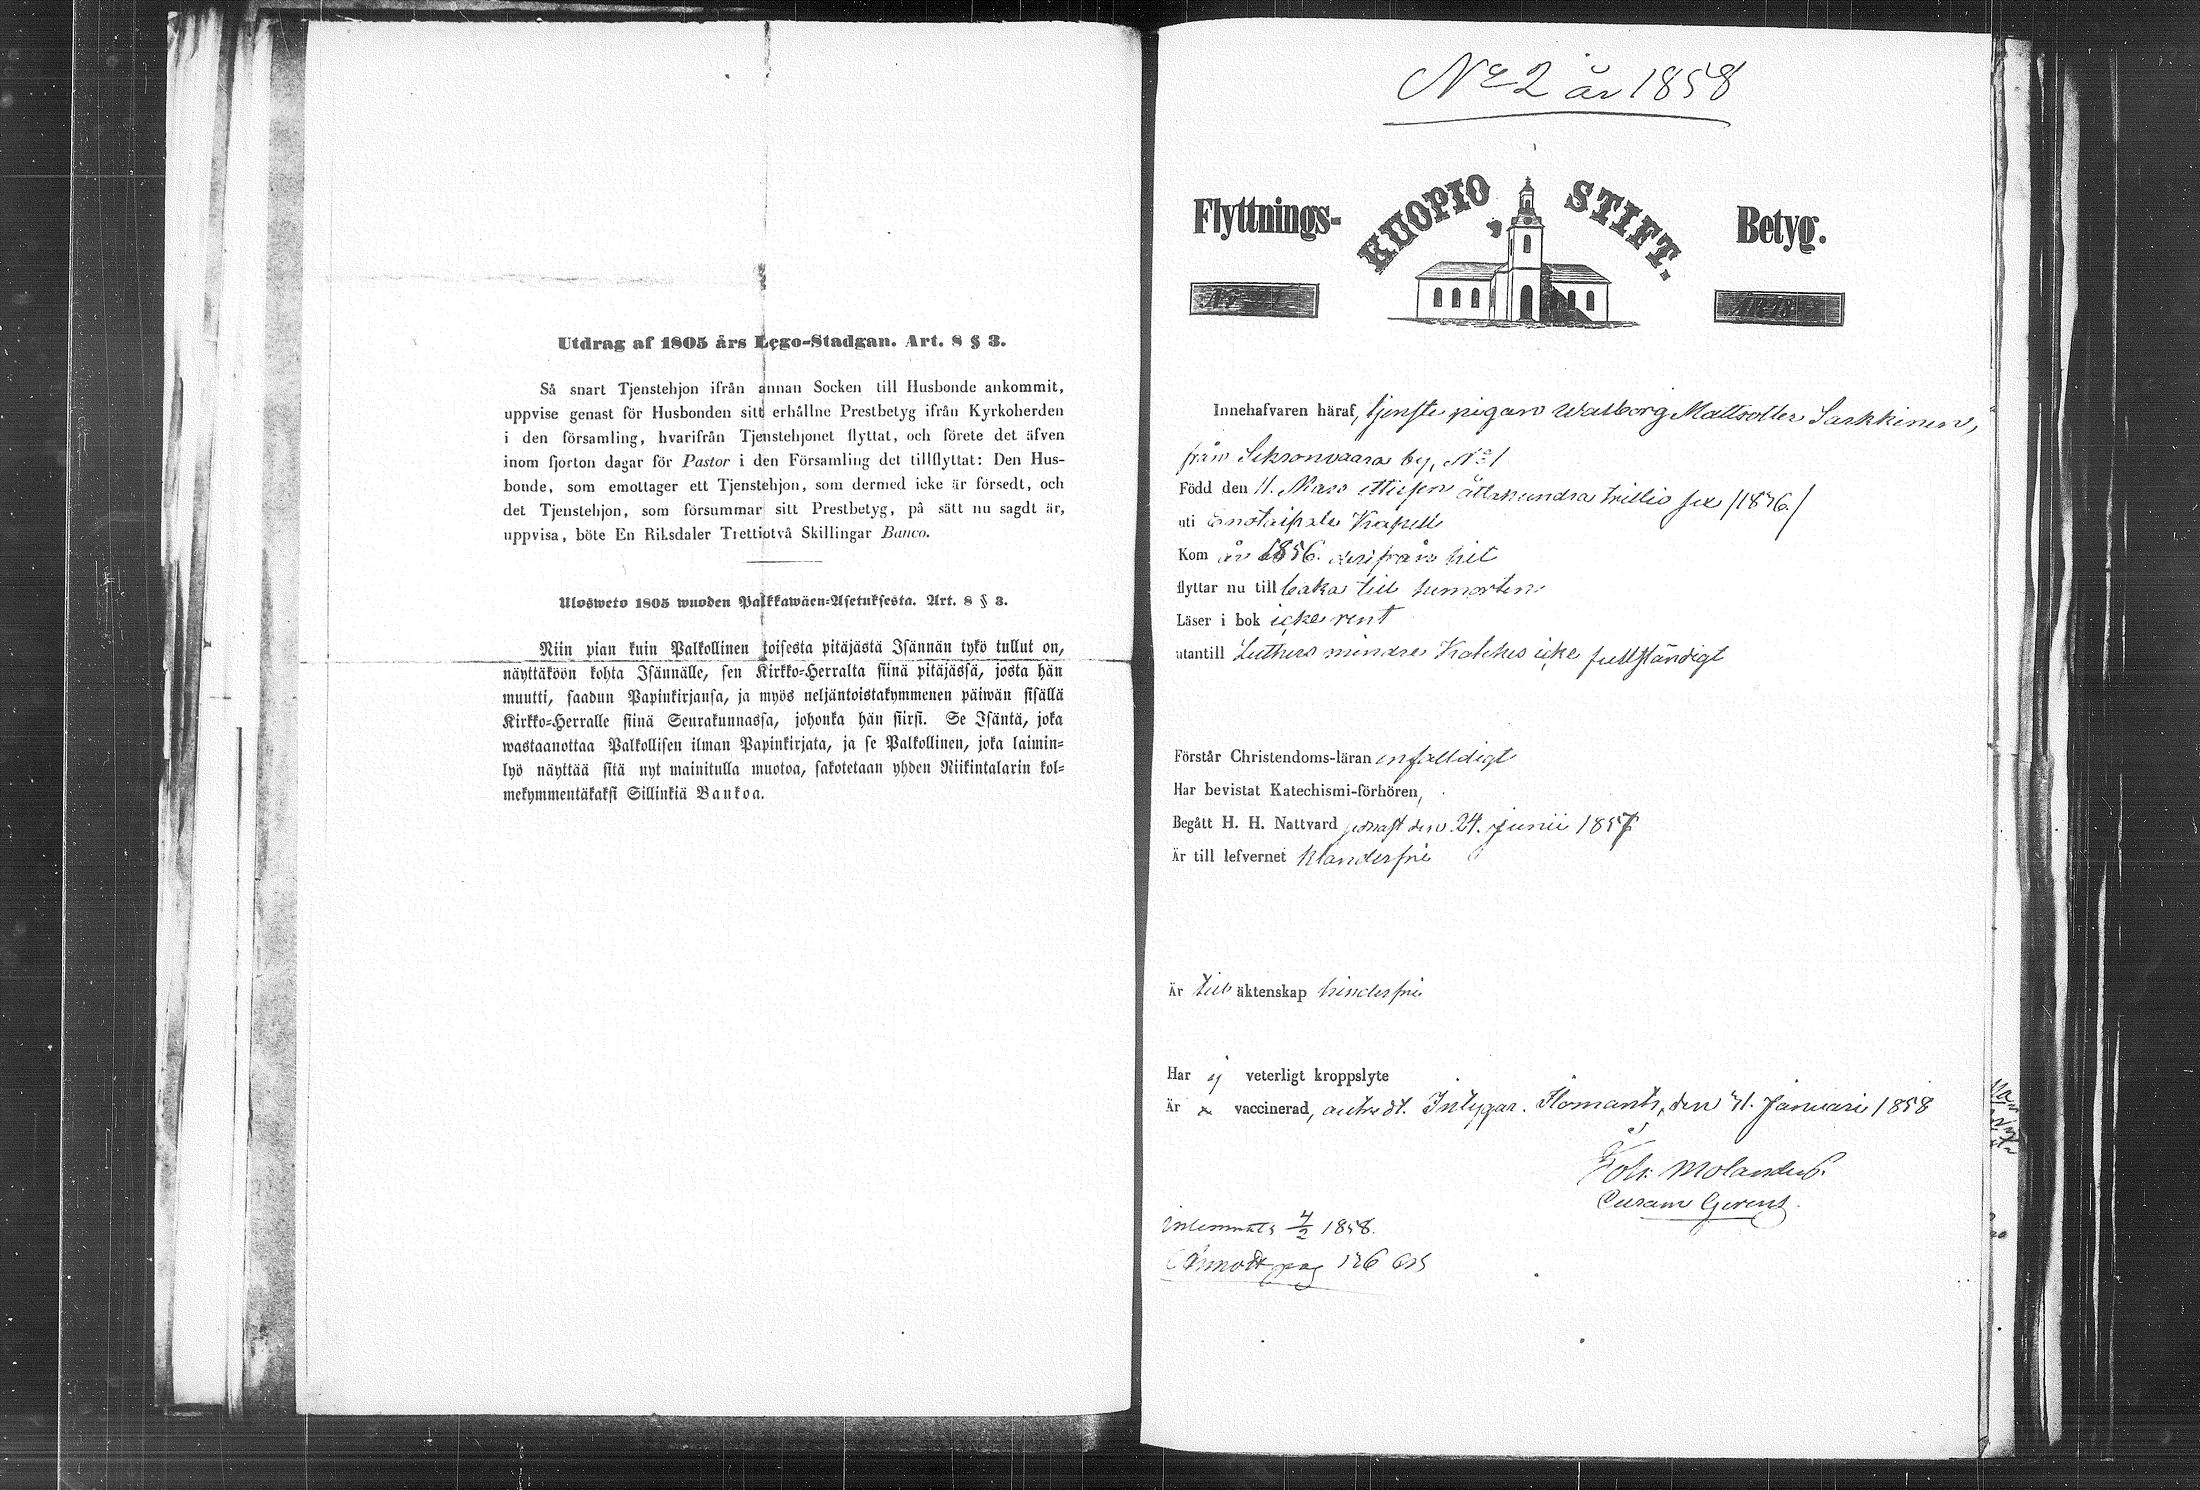 Utdrag af 1805 års Lego-Stadgan. Art. 8 § 3.
Så snart Tjenstehjon ifrån annan Socken till Husbonde ankommit,
uppvise genast för Husbonden sitt erhållne Prestbetyg ifrån Kyrkoherden
i den församling, hvarifrån Tjenstehjonet flyttat, och förete det äfven
inom fjorton dagar för Pastor i den Församling det tillflyttat: Den Hus-
bonde, som emottager ett Tjenstehjon, som dermed icke är försedt, och
det Tjenstehjon, som försummar sitt Prestbetyg, på sätt nu sagdt är,
uppvisa, böte En Riksdaler Trettiotvå Skillingar Banco.
Ulosweto 1805 wuoden Palkkawäen-Asetuksesta. Art. 8 § 3.
Niin pian kuin Palkollinen toisesta pitäjästä Isännän tykö tullut on,
näyttäköön kohta Isännälle, sen Kirkko-Herralta siinä pitäjässä, josta hän
muutti, saadun Papinkirjansa, ja myös neljäntoistakymmenen päiwän sisällä
Kirkko-Herralle siinä Seurakunnassa, johonka hän siirsi. Se Isäntä, joka
wastaanottaa Palkollisen ilman Papinkirjata, ja se Palkollinen, joka laimin-
lyö näyttää sitä nyt mainitulla muotoa, sakotetaan yhden Riikintalarin kol-
mekymmentäkaksi Sillinkiä Bankoa.
No 2 år 1858
Flyttnings- KUOPIO STIFT. Betyg.
Innehafvaren häraf, tjenste pigan Walborg Mattsdotter Sarkkinen,
från Sikronvaara by, No 1
Född den 11. Mars adertonhundra trettio sex /1836/
uti Kapell
Kom år 1856. derifrån hit
flyttar nu till baka till hemorten
Läser i bok icke rent
utantill Luthers mindre Kateches icke fullständigt
Förstår Christendoms-läran enfalldigt
Har bevistat Katechismi-förhören,
Begått H. H. Nattvard senast den 24. Junii 1857
Är till lefvernet klanderfri
Är till äktenskap hinderfri
Har ej veterligt kroppslyte
Är vaccinerad, Intygar. Ilomants, den 31. Januari 1858
Joh. Molander
Curam Gerens.
inlemnats 1858.
Annot pag 126